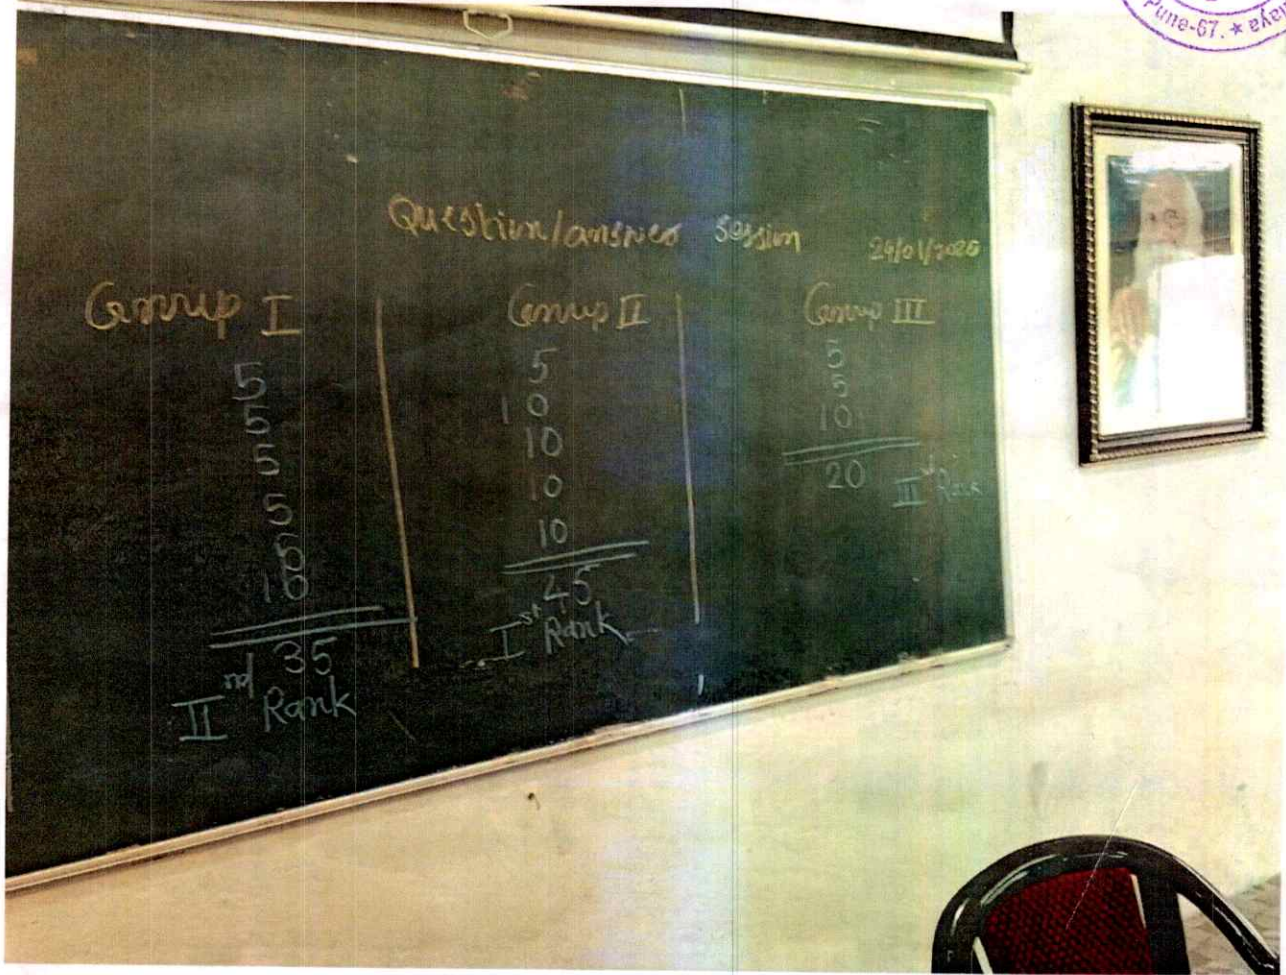 Pune-67. *
Question/answer session 24/01/2025
Group I
5
5
5
5
5
10
35
IInd Rank
Group II
5
10
10
10
10
45
Ist Rank
Group III
5
5
10
20
III Rank